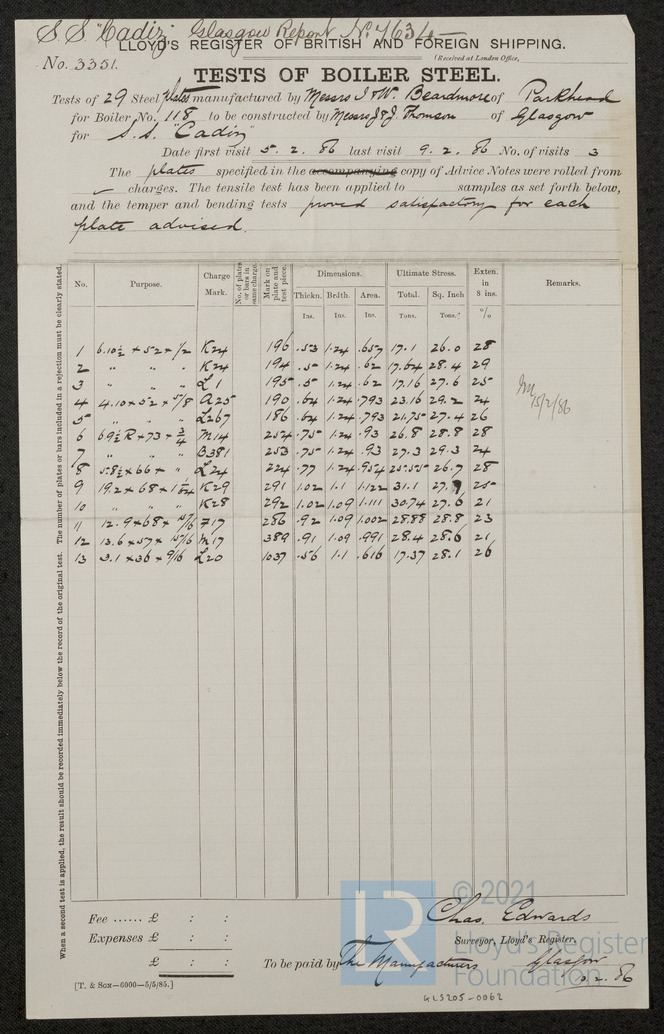 S.S. "Cadiz" Glasgow Report No. 7634
LLOYD'S REGISTER OF BRITISH AND FOREIGN SHIPPING.
No. 3351. (Received at London Office,
TESTS OF BOILER STEEL.
Tests of 29 Steel plates manufactured by Messrs I & W. Beardmore of Parkhead
for Boiler No. 118 to be constructed by Messrs J & J Thomson of Glasgow
for S.S. "Cadiz"
Date first visit 5. 2. 86 last visit 9. 2. 86 No. of visits 3
The plates specified in the accompanying copy of Advice Notes were rolled from
charges. The tensile test has been applied to samples as set forth below,
and the temper and bending tests proved satisfactory for each
plate advised.
No. Purpose. Charge Mark. No. of plates or bars in same charge. Mark on plate and test piece. Dimensions. Ultimate Stress. Exten. in 8 ins. Remarks.
Thickn. Brdth. Area. Total. Sq. Inch
Ins. Ins. Ins. Tons. Tons. %
1 6.10½ × 52 × 1/2 K24 196 .53 1.24 .657 17.1 26.0 28
2 " " " K24 194 .5 1.24 .62 17.64 28.4 29
3 " " " L1 195 .5 1.24 .62 17.16 27.6 25
4 4.10 × 52 × 5/8 A25 190 .64 1.24 .793 23.16 29.2 24
5 " " " L267 186 .64 1.24 .793 21.75 27.4 26
6 69½ R × 73 × 3/4 M14 254 .75 1.24 .93 26.8 28.8 28
7 " " " B381 253 .75 1.24 .93 27.3 29.3 24
8 5.8½ × 66 × " L24 224 .77 1.24 .954 25.55 26.7 28
9 19.2 × 68 × 1 1/64 K29 291 1.02 1.1 1.122 31.1 27.7 25
10 " " " K28 292 1.02 1.09 1.111 30.74 27.6 21
11 12.9 × 68 × 15/16 F17 286 .92 1.09 1.002 28.88 28.8 23
12 13.6 × 57 × 15/16 M17 389 .91 1.09 .991 28.4 28.6 21
13 3.1 × 36 × 9/16 L20 1037 .56 1.1 .616 17.37 28.1 26
15/2/86
When a second test is applied, the result should be recorded immediately below the record of the original test. The number of plates or bars included in a rejection must be clearly stated.
Fee ...... £ : :
Expenses £ : :
£ : :
Chas. Edwards
Surveyor, Lloyd's Register.
To be paid by The Manufacturers Glasgow
2. 86
[T. & Son—6000—5/5/85.]
GLS205-0062
LR
© 2021
Lloyd's Register
Foundation